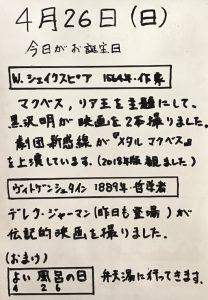 4月26日(日)
今日がお誕生日
W.シェイクスピア 1564年・作家
マクベス,リア王を主題にして、
黒沢明が映画を2本撮りました。
劇団新感線が『メタルマクベス』
を上演しています。(2018年版 観ました)
ヴィトゲンシュタイン 1889年・哲学者
デレク・ジャーマン(昨日も登場)が
伝記的映画を撮りました。
(おまけ)
よい風呂の日 弁天湯に行ってきます。
4 2 6